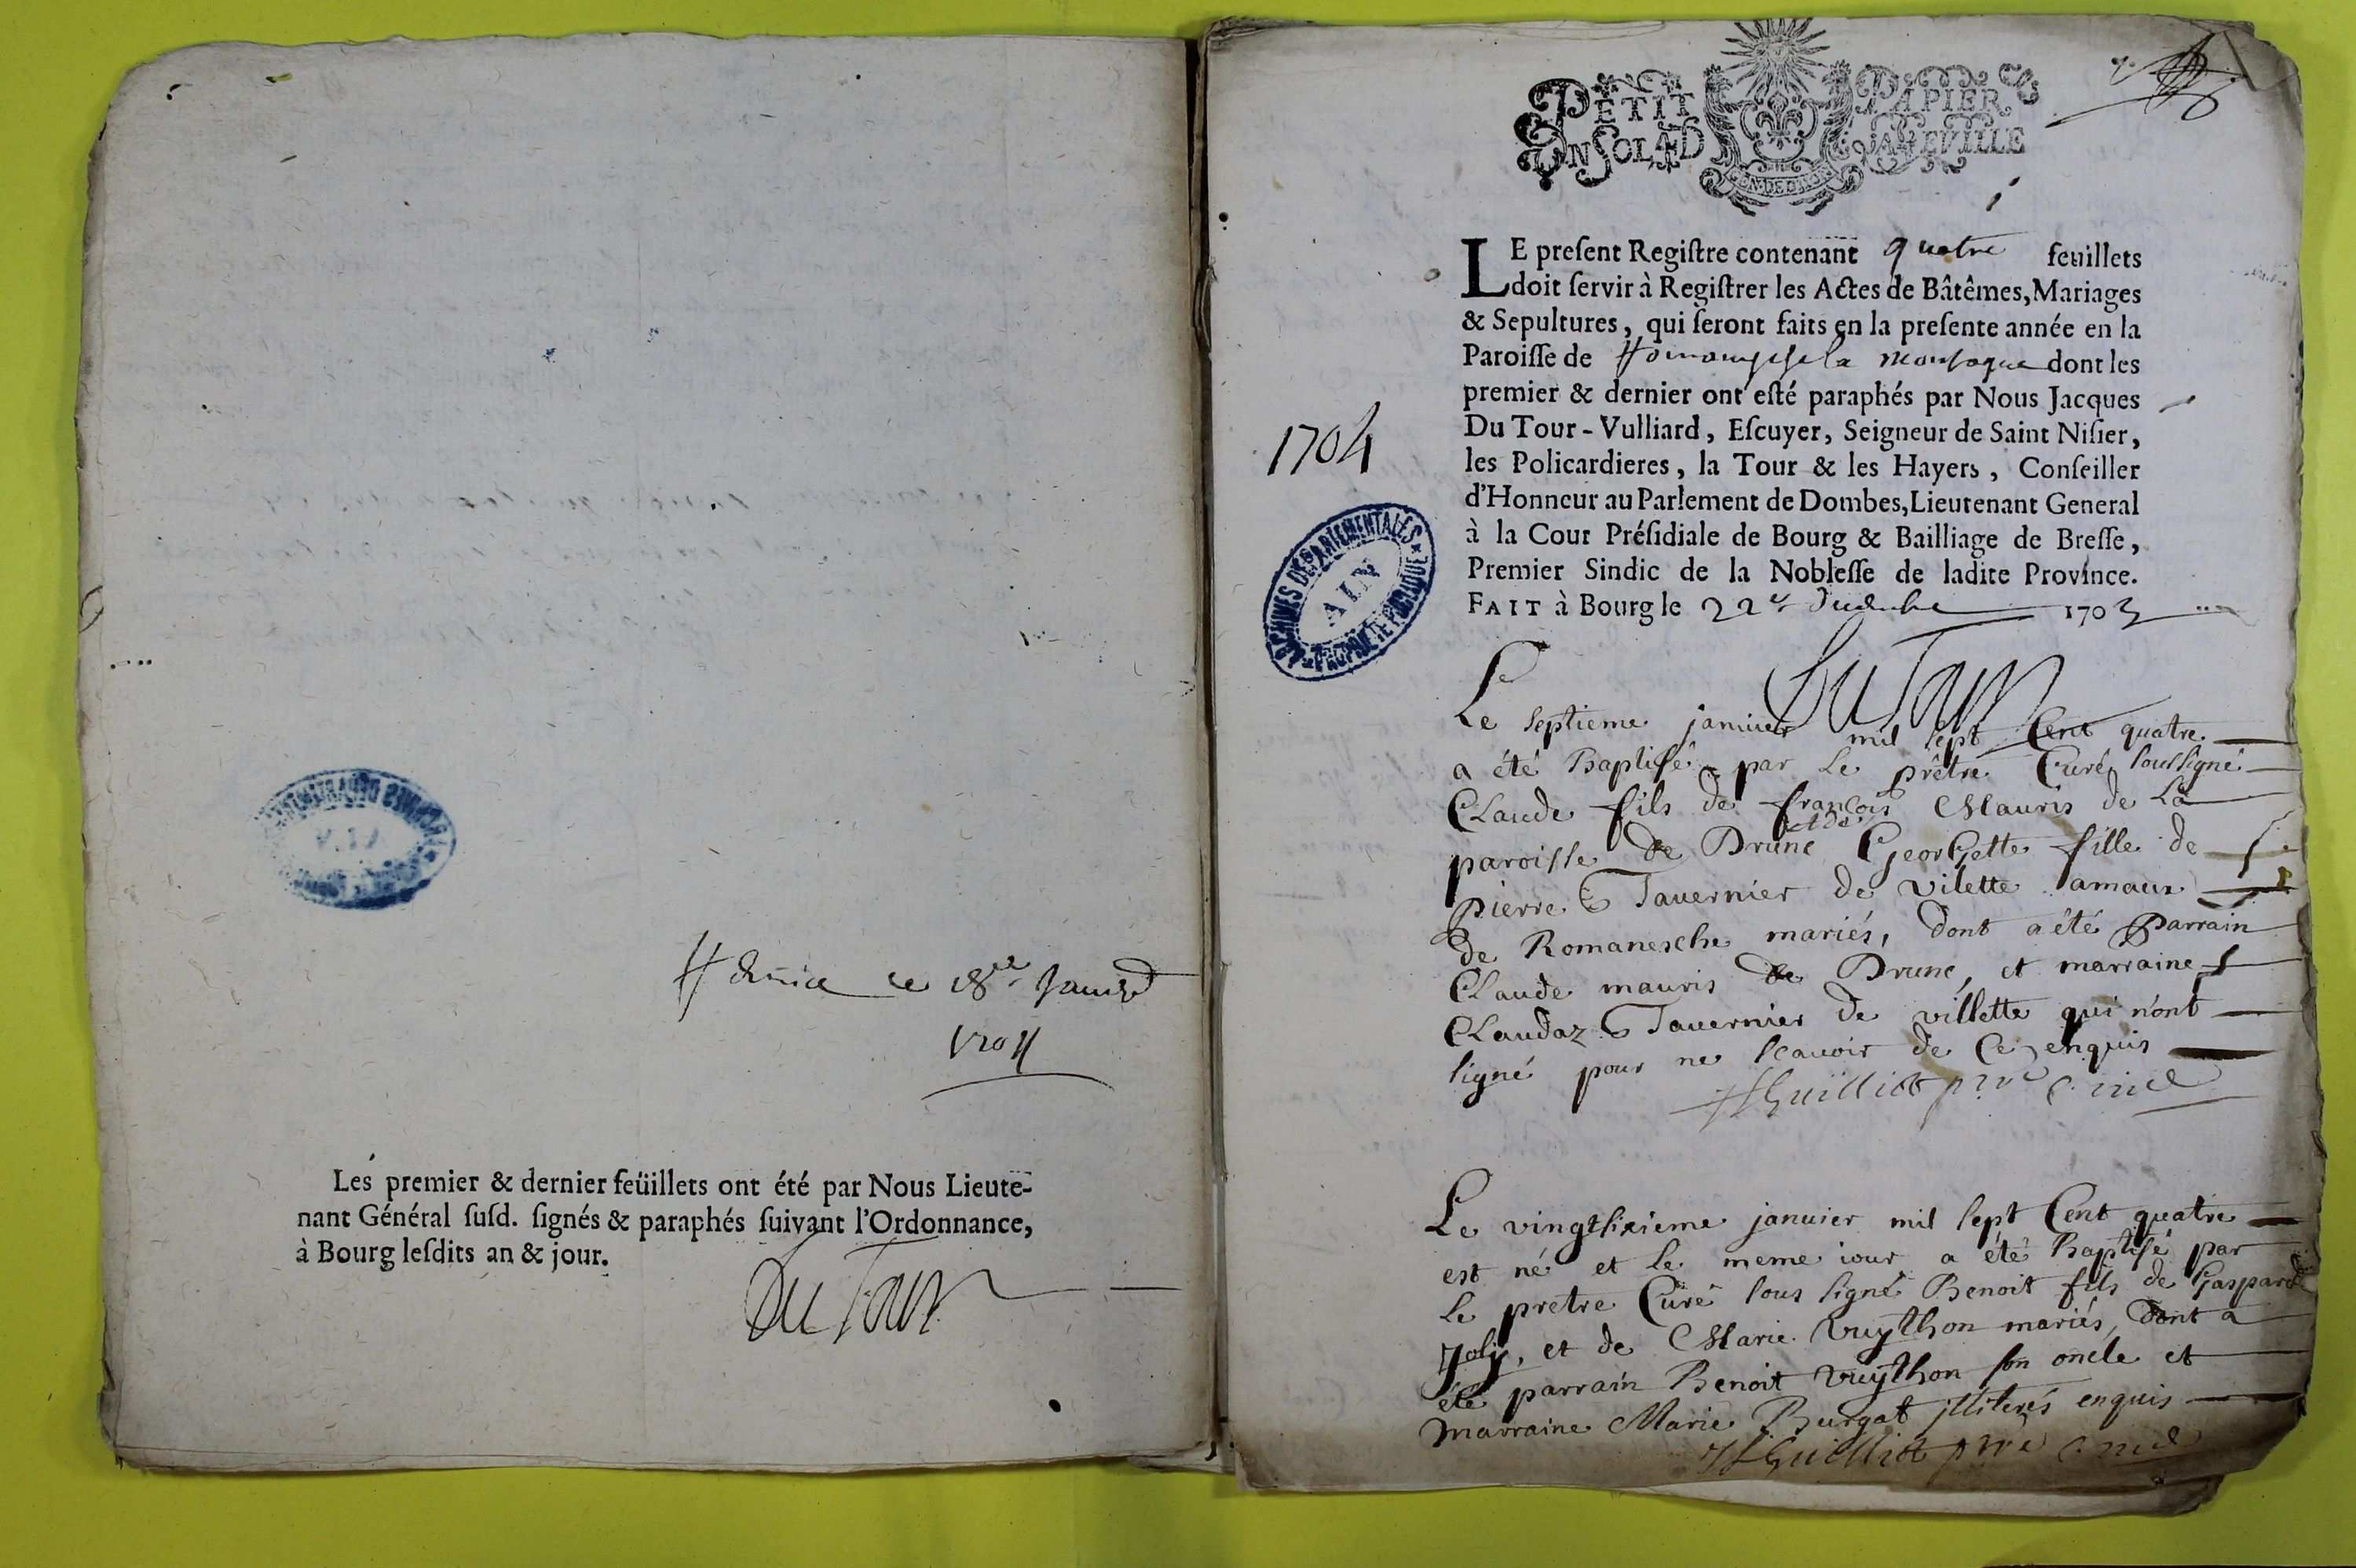 ce 18e
1704
Les premier & dernier feüillets ont été par Nous Lieute-
nant Général susd. signés & paraphés suivant l'Ordonnance,
à Bourg lesdits an & jour.
Du Tour
PETIT PAPIER
UN SOL 4 D LA FEUILLE
GEN. DE DIION
1
LE present Registre contenant quatre feuillets
doit servir à Registrer les Actes de Bâtêmes, Mariages
& Sepultures, qui seront faits en la presente année en la
Paroisse de la montagne dont les
premier & dernier ont esté paraphés par Nous Jacques
Du Tour-Vulliard, Escuyer, Seigneur de Saint Nisier,
les Policardieres, la Tour & les Hayers, Conseiller
d'Honneur au Parlement de Dombes, Lieutenant General
à la Cour Présidiale de Bourg & Bailliage de Bresse,
Premier Sindic de la Noblesse de ladite Province.
FAIT à Bourg le 22e Decembre 1703
1704
ARCHIVES DEPARTEMENTALES
AIN
PROPRIETE PUBLIQUE
Du Tour
Le septieme januier mil sept Cent quatre
a été Baptisé par Le prêtre Curé soussigné
CLaude fils de françois Mauris de La
et de
paroisse de Drune Georgette fille de
pierre Tauernier de vilette amaux
de Romanesche mariés, dont a été parrain
CLaude mauris de Drune, et marraine
CLaudaz Tauernier de villette qui n'ont
signé pour ne scauoir de Ce enquis
Guilliot ptre curé
Le vingtsixieme januier mil sept Cent quatre
est né et Le meme iour a été Baptisé par
Le pretre Curé sous signé Benoit fils de Gaspard
Joly, et de Marie Vuython mariés, dont a
été parrain Benoit Vuython son oncle et
marraine Marie Burgat illiterés enquis
Guilliot ptre curé